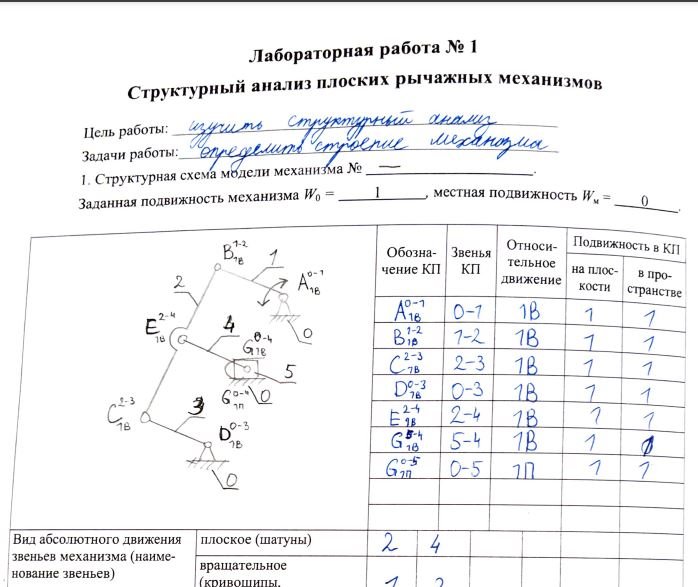 Лабораторная работа № 1
Структурный анализ плоских рычажных механизмов
Цель работы: изучить структурный анализ
Задачи работы: определить строение механизма
1. Структурная схема модели механизма № —.
Заданная подвижность механизма W₀ = 1, местная подвижность Wм = 0
B 1-2 1В
1
A 0-1 1В
2
0
E 2-4 1В
4
G 0-4 1В
5
G 0-4 1П
0
C 2-3 1В
3
D 0-3 1В
0
Обозна-
чение КП
Звенья
КП
Относи-
тельное
движение
Подвижность в КП
на плос-
кости
в про-
странстве
A 0-1 1В 0-1 1В 1 1
B 1-2 1В 1-2 1В 1 1
C 2-3 1В 2-3 1В 1 1
D 0-3 1В 0-3 1В 1 1
E 2-4 1В 2-4 1В 1 1
G 5-4 1В 5-4 1В 1 1
G 0-5 1П 0-5 1П 1 1
Вид абсолютного движения
звеньев механизма (наиме-
нование звеньев)
плоское (шатуны) 2 4
вращательное
(кривошипы, 1 3